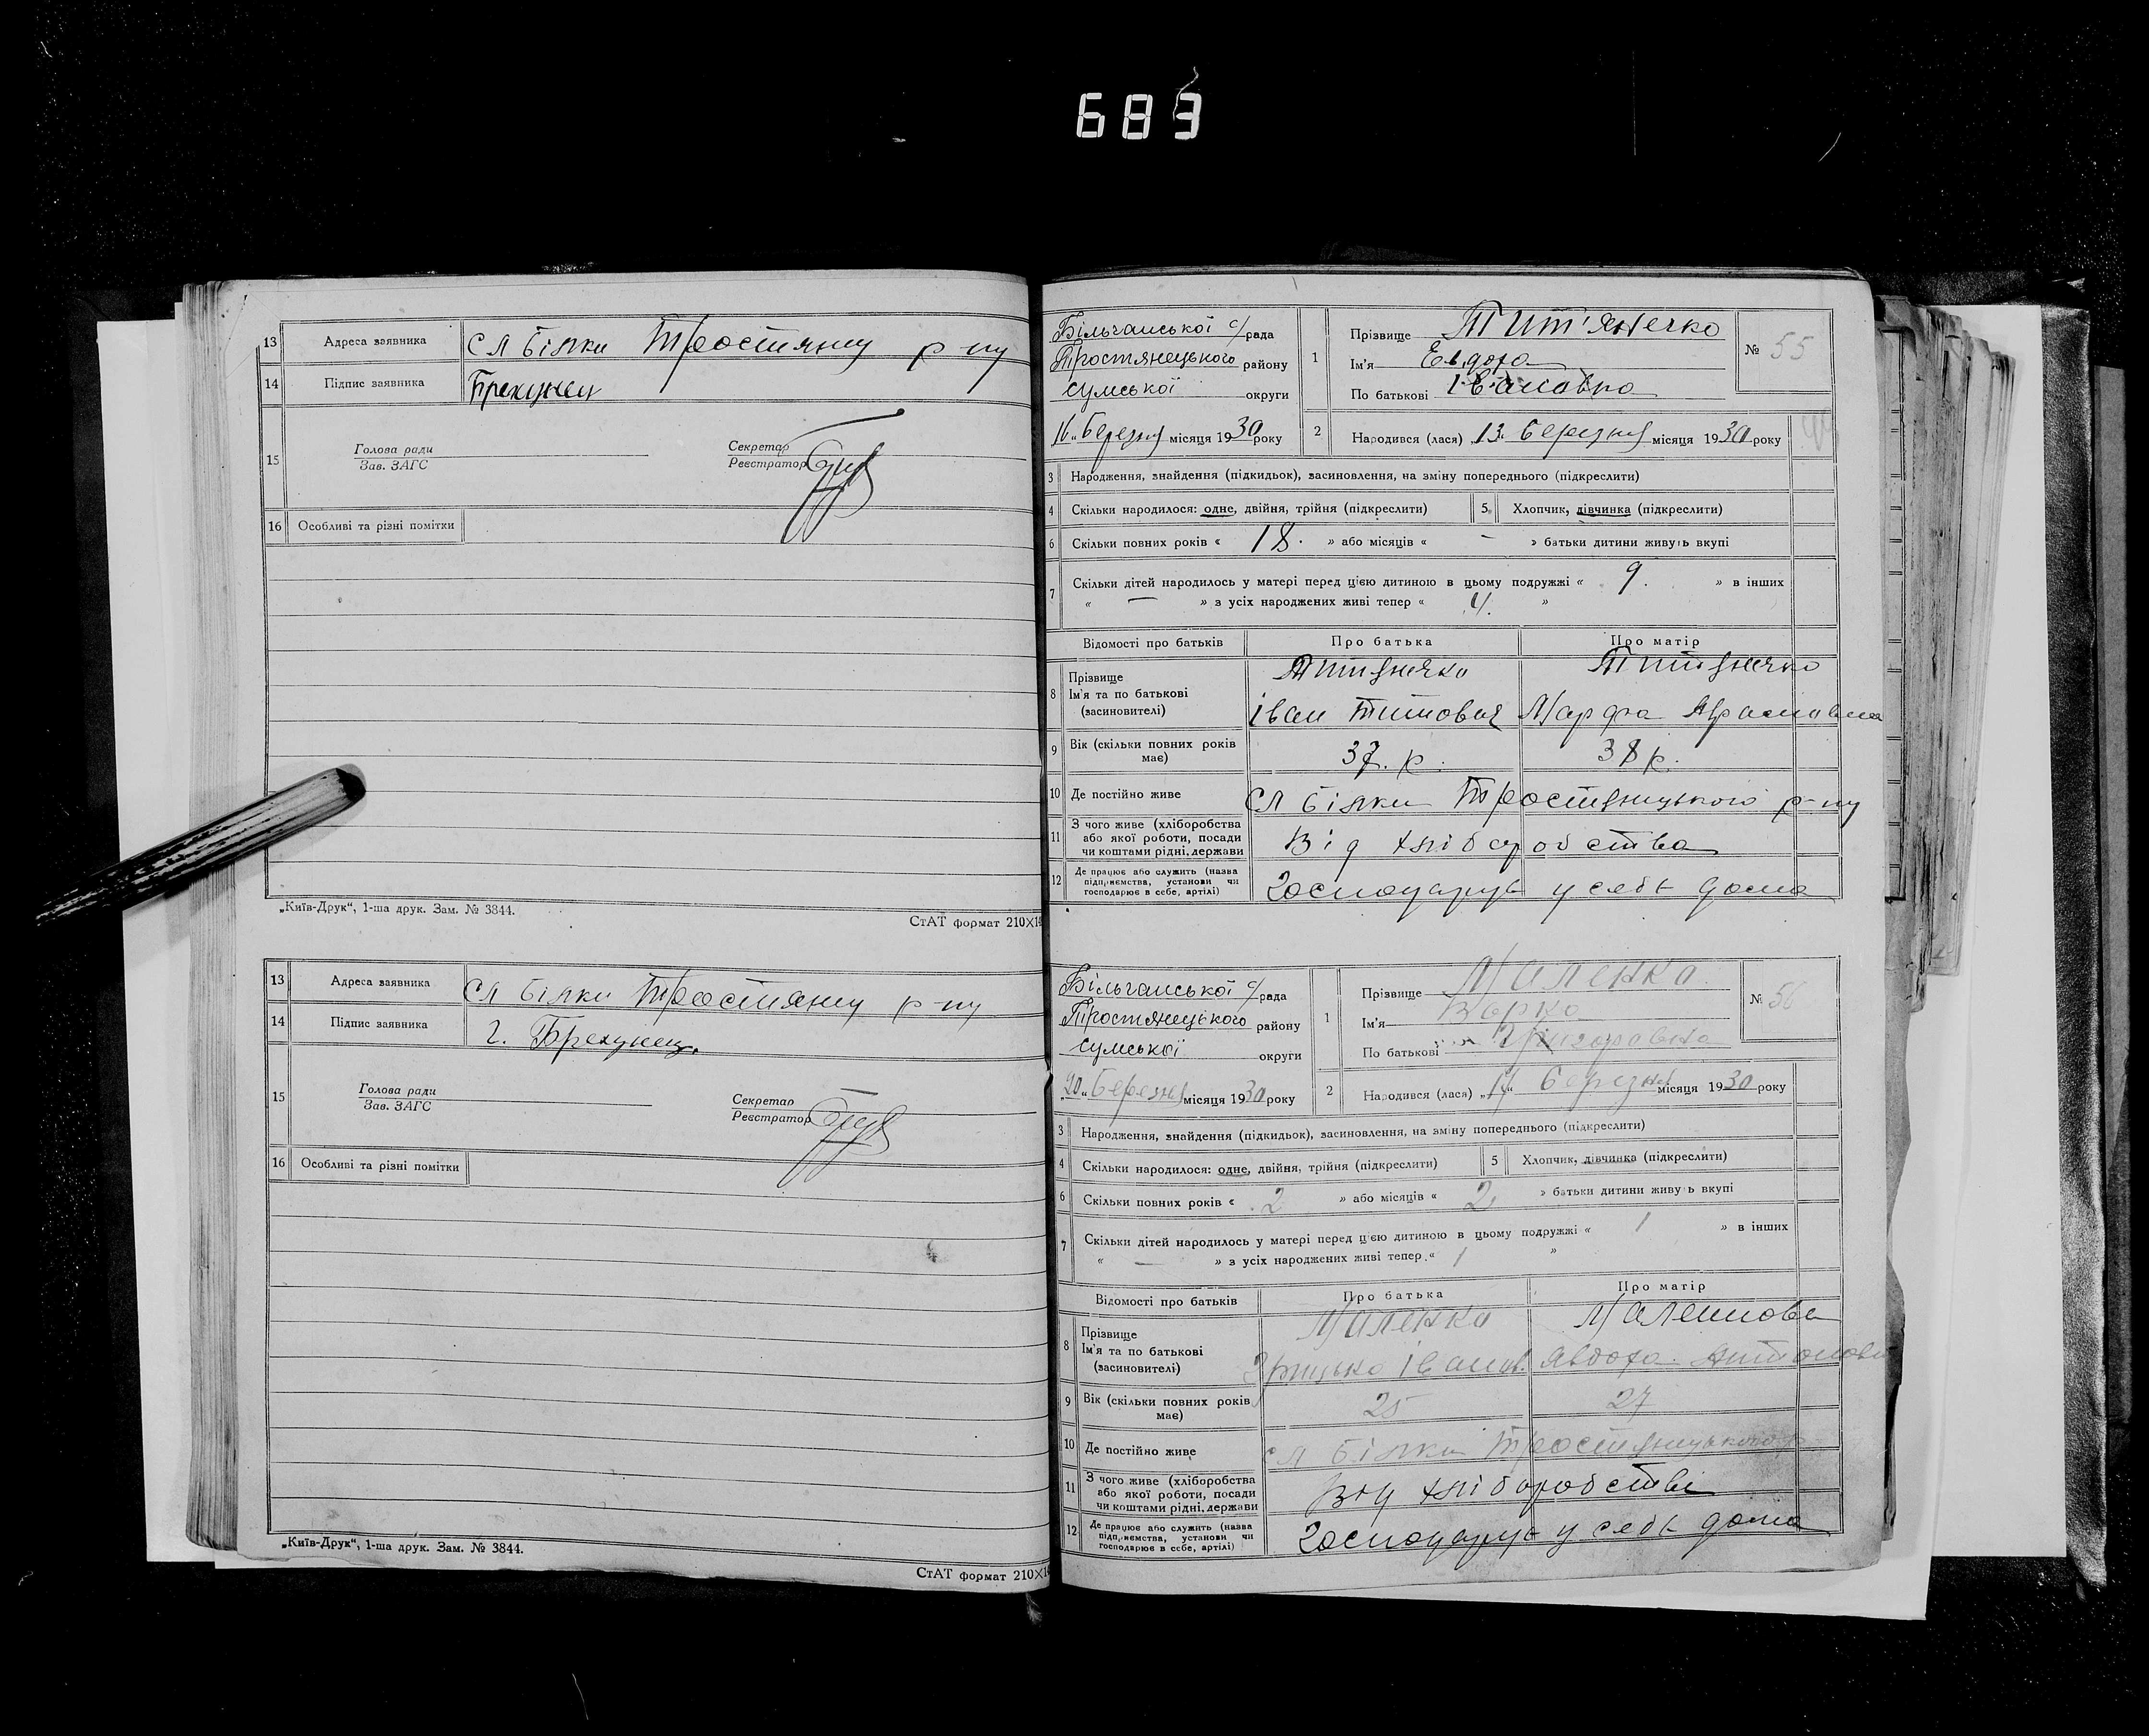 683
13 Адреса заявника сл Білки Тростянец р-ну
14 Підпис заявника Брехунец
15 Голова ради
Зав. ЗАГС
Секретар
Реєстратор
16 Особливі та різні помітки
„Київ-Друк“, 1-ша друк. Зам. № 3844.
СтАТ формат 210×14
13 Адреса заявника сл Білки Тростянец р-ну
14 Підпис заявника г. Брехунец.
15 Голова ради
Зав. ЗАГС
Секретар
Реєстратор
16 Особливі та різні помітки
„Київ-Друк“, 1-ша друк. Зам. № 3844.
СтАТ формат 210×14
Більчанської с/рада
Тростянецького району
Сумської округи
16 Березня місяця 1930 року
1 Прізвище Тит'янечко
Ім'я Евдоха
По батькові Івановна
№ 55
2 Народився (лася) 13 березня місяця 1930 року
3 Народження, знайдення (підкидьок), засиновлення, на зміну попереднього (підкреслити)
4 Скільки народилося: одне, двійня, трійня (підкреслити) 5 Хлопчик, дівчинка (підкреслити)
6 Скільки повних років « 18. » або місяців « — » батьки дитини живуть вкупі
7 Скільки дітей народилось у матері перед цією дитиною в цьому подружжі « 9. » в інших
« — » з усіх народжених живі тепер « 4. »
Відомості про батьків Про батька Про матір
8 Прізвище Титянечко Титянечко
Ім'я та по батькові
(засиновителі) Іван Титович Марфа
9 Вік (скільки повних років має) 37. р. 38 р.
10 Де постійно живе сл Білки Тростянецького р-ну
11 З чого живе (хліборобства
або якої роботи, посади
чи коштами рідні, держави Від хліборобства
12 Де працює або служить (назва
підприємства, установи чи
господарює в себе, артілі) Господарує у себе дома
Більчанської с/рада
Тростянецького району
Сумської округи
20 Березня місяця 1930 року
1 Прізвище Маленко
Ім'я Варка
По батькові Григоровна
№ 56
2 Народився (лася) березня місяця 1930 року
3 Народження, знайдення (підкидьок), засиновлення, на зміну попереднього (підкреслити)
4 Скільки народилося: одне, двійня, трійня (підкреслити) 5 Хлопчик, дівчинка (підкреслити)
6 Скільки повних років « 2 » або місяців « 2 » батьки дитини живуть вкупі
7 Скільки дітей народилось у матері перед цією дитиною в цьому подружжі « 1 » в інших
« — » з усіх народжених живі тепер « 1 »
Відомості про батьків Про батька Про матір
8 Прізвище Маленко
Ім'я та по батькові
(засиновителі) Грицько Іванов. Явдоха Антонов
9 Вік (скільки повних років має) 25 27
10 Де постійно живе сл Білки Тростянецького р-
11 З чого живе (хліборобства
або якої роботи, посади
чи коштами рідні, держави Від хліборобстві
12 Де працює або служить (назва
підприємства, установи чи
господарює в себе, артілі) Господарує у себе дома